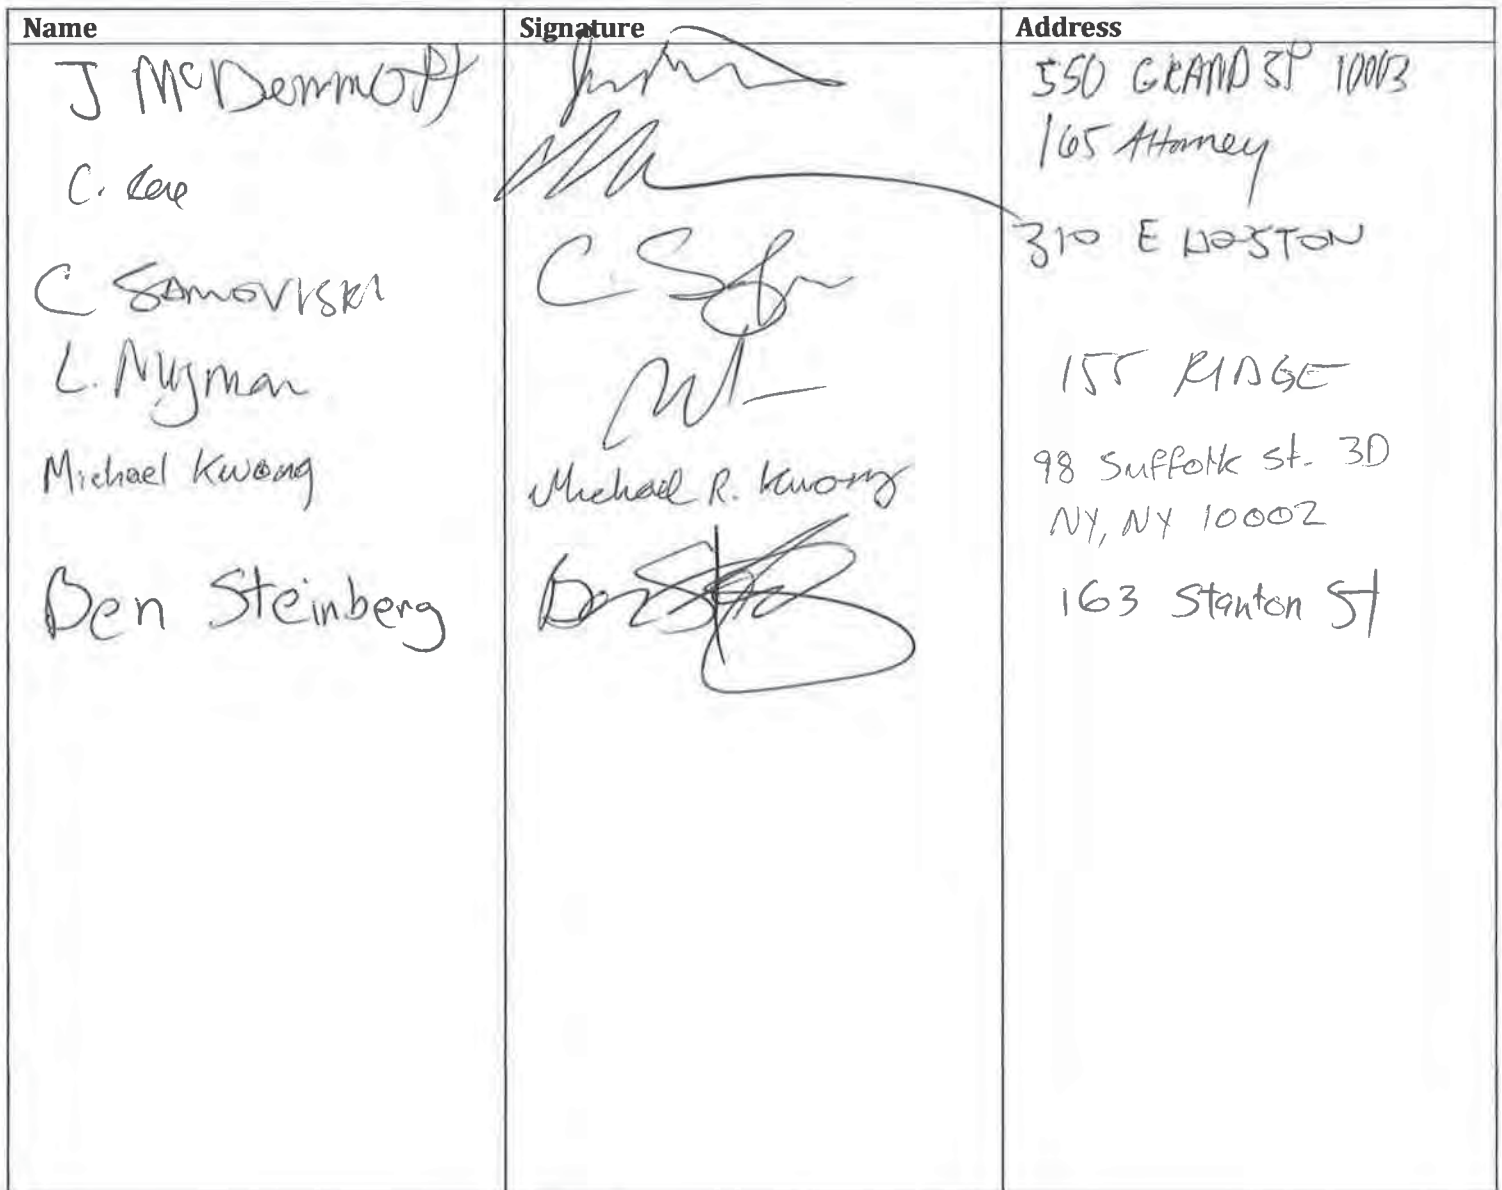 Name Signature Address
J McDermott 550 GRAND ST 10013
C. 165 Attorney
C 310 E HOSTON
L. Nugman 155 RIDGE
Michael Kwong Michael R. Kwong 98 Suffolk St. 3D
NY, NY 10002
Ben Steinberg 163 Stanton St